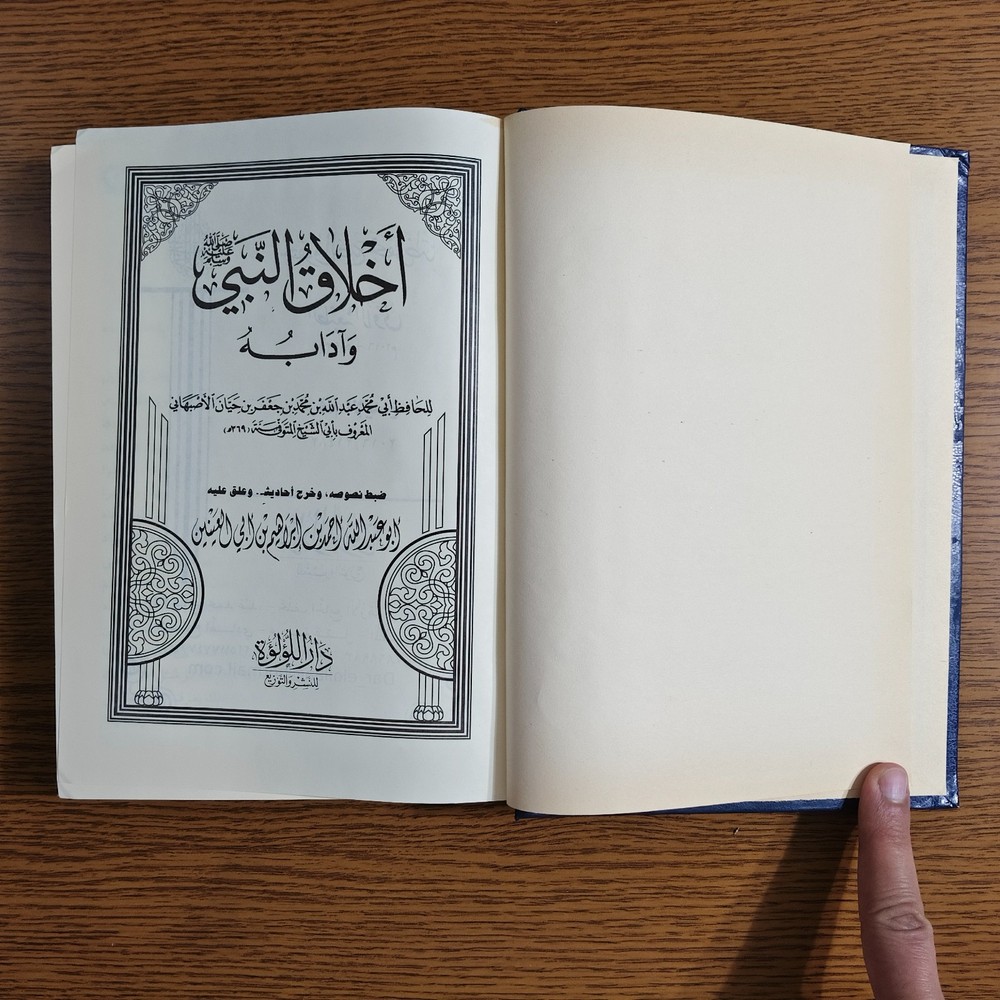 أَخْلَاقُ النَّبِيّ ﷺ
وَآدَابُهُ
لِلحَافِظ أَبِي مُحَمَّد عَبْد اللَّه بْن مُحَمَّد بْن جَعْفَر بْن حَيَّان الأَصْبَهَانِي
المَعْرُوف بِأَبِي الشَّيْخ المتَوَفَّى سَنَة (٣٦٩ه)
ضبط نصوصه، وخرج أحاديثه.. وعلق عليه
أبو عبد الله أحمد بن إبراهيم بن أبي العينين
دَارُ اللُّؤْلُؤَة
لِلنَّشْرِ وَالتَّوْزِيعِ